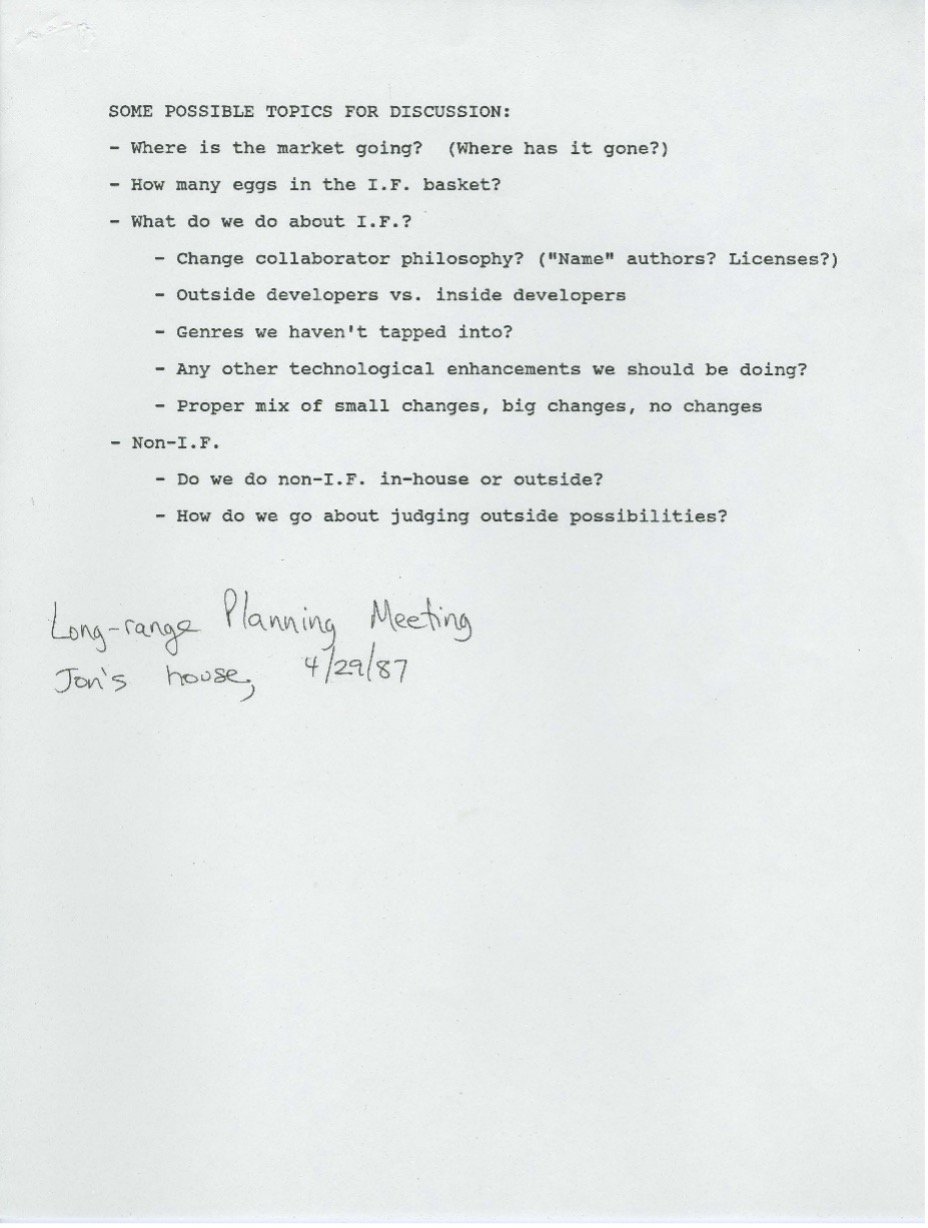 SOME POSSIBLE TOPICS FOR DISCUSSION:
- Where is the market going?  (Where has it gone?)
- How many eggs in the I.F. basket?
- What do we do about I.F.?
- Change collaborator philosophy? ("Name" authors? Licenses?)
- Outside developers vs. inside developers
- Genres we haven't tapped into?
- Any other technological enhancements we should be doing?
- Proper mix of small changes, big changes, no changes
- Non-I.F.
- Do we do non-I.F. in-house or outside?
- How do we go about judging outside possibilities?
Long-range Planning Meeting
Jon's house, 4/29/87